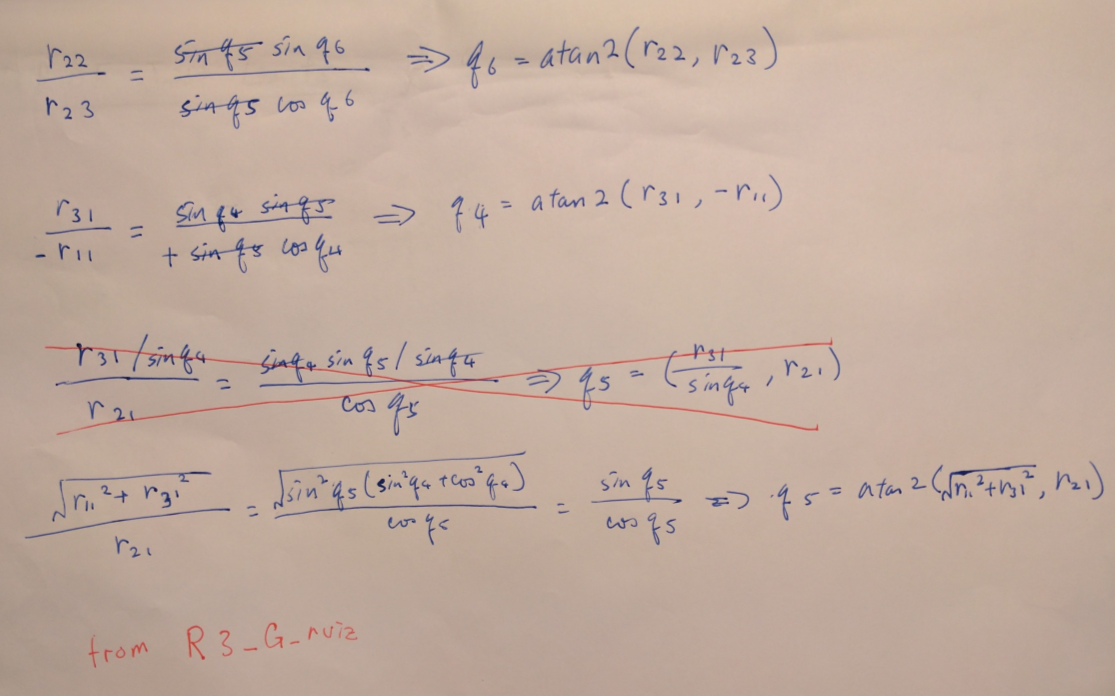 r22 / r23 = sin q5 sin q6 / sin q5 cos q6 ⇒ q6 = atan2(r22, r23)
r31 / -r11 = sin q4 sin q5 / + sin q5 cos q4 ⇒ q4 = atan2(r31, -r11)
r31/sin q4 / r21 = sin q4 sin q5 / sin q4 / cos q5 ⇒ q5 = (r31 / sin q4, r21)
√r11² + r31² / r21 = √sin² q5 (sin² q4 + cos² q4) / cos q5 = sin q5 / cos q5 ⇒ q5 = atan2(√r11² + r31², r21)
from R3_G_rviz